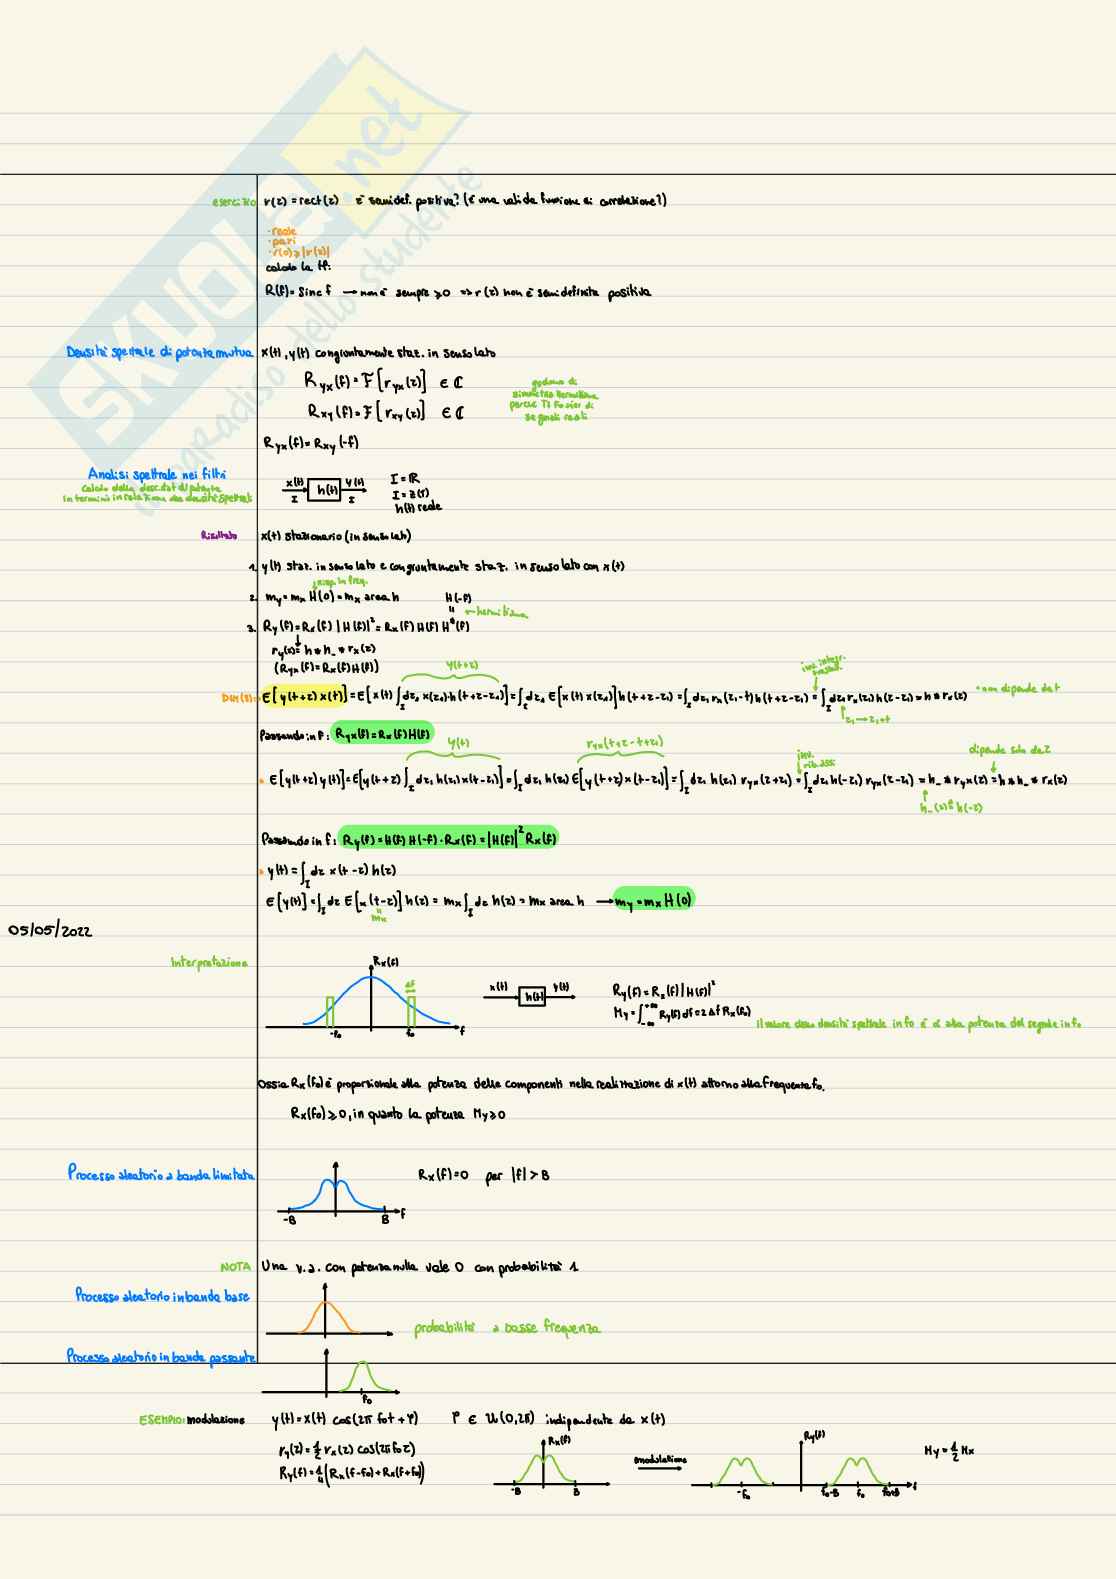 SKUOLA.net
il paradiso dello studente
esercizio r(τ) = rect(τ) è semidef. positiva? (è una valida funzione di correlazione?)
· reale
· pari
· r(0) ≥ |r(τ)|
calcolo la tf:
R(f) = sinc f → non è sempre ≥0 => r(τ) non è semidefinita positiva
Densità spettrale di potenza mutua x(t), y(t) congiuntamente staz. in senso lato
R yx (f) = F[r yx (τ)] ∈ ℂ
R xy (f) = F[r xy (τ)] ∈ ℂ
godono di
simmetria hermitiana
perché Tf Fourier di
segnali reali
R yx (f) = R xy (-f)
Analisi spettrale nei filtri
calcolo della descr. stat. di potenza
in termini in relazione alle densità spettrali
x(t) h(t) y(t)
I I
I = ℝ
I = Z(T)
h(t) reale
Risultato x(t) stazionario (in senso lato)
1. y(t) staz. in senso lato e congiuntamente staz. in senso lato con x(t)
risp. in freq.
2. my = mx H(0) = mx area h H(-f)
" ← hermitiana
3. Ry(f) = Rx(f) |H(f)|² = Rx(f) H(f) H*(f)
ry(τ) = h * h_ * rx(τ)
(Ryx(f) = Rx(f) H(f))
y(t+τ)
Dim(3): E[y(t+τ) x(t)] = E[x(t) ∫_I dτ₁ x(τ₁) h(t+τ-τ₁)] = ∫_I dτ₁ E[x(t) x(τ₁)] h(t+τ-τ₁) = ∫_I dτ₁ rx(τ₁-t) h(t+τ-τ₁) = ∫_I dτ₁ rx(τ₁) h(τ-τ₁) = h * rx(τ) · non dipende da t
τ₁ → τ₁+t
Passando in f: Ryx(f) = Rx(f) H(f)
y(t) ryx(t+τ-t+τ₁) inv. rib. assi dipende solo da τ
· E[y(t+τ) y(t)] = E[y(t+τ) ∫_I dτ₁ h(τ₁) x(t-τ₁)] = ∫_I dτ₁ h(τ₁) E[y(t+τ) x(t-τ₁)] = ∫_I dτ₁ h(τ₁) ryx(τ+τ₁) = ∫_I dτ₁ h(-τ₁) ryx(τ-τ₁) = h_ * ryx(τ) = h * h_ * rx(τ)
h_(τ) ≜ h(-τ)
Passando in f: Ry(f) = H(f) H(-f) · Rx(f) = |H(f)|² Rx(f)
· y(t) = ∫_I dτ x(t-τ) h(τ)
E[y(t)] = ∫_I dτ E[x(t-τ)] h(τ) = mx ∫_I dτ h(τ) = mx area h → my = mx H(0)
" mx
05/05/2022
Interpretazione
Rx(f) Δf
-f₀ f₀ f
x(t) h(t) y(t)
Ry(f) = Rx(f) |H(f)|²
My = ∫_-∞^+∞ Ry(f) df = 2 Δf Rx(f₀)
Il valore della densità spettrale in f₀ è ∝ alla potenza del segnale in f₀
Ossia Rx(f₀) è proporzionale alla potenza delle componenti nella realizzazione di x(t) attorno alla frequenza f₀.
Rx(f₀) ≥ 0, in quanto la potenza My ≥ 0
Processo aleatorio a banda limitata
-B B f
Rx(f) = 0 per |f| > B
NOTA Una v.a. con potenza nulla vale 0 con probabilità 1
Processo aleatorio in banda base
probabilità a basse frequenza
Processo aleatorio in banda passante
f₀
ESEMPIO: modulazione y(t) = x(t) cos(2π f₀t + φ) φ ∈ U(0,2π) indipendente da x(t)
ry(τ) = 1/2 rx(τ) cos(2π f₀ τ)
Ry(f) = 1/4 (Rx(f-f₀) + Rx(f+f₀))
Rx(f)
-B B
modulazione
Ry(f)
-f₀ f₀-B f₀ f₀+B f
My = 1/2 Mx